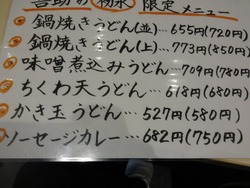 喜助の 初秋 限定メニュー
鍋焼きうどん(並)…655円(720円)
鍋焼きうどん(上)…773円(850円)
味噌煮込みうどん…709円(780円)
ちくわ天うどん…618円(680円)
かき玉うどん…527円(580円)
ソーセージカレー…682円(750円)